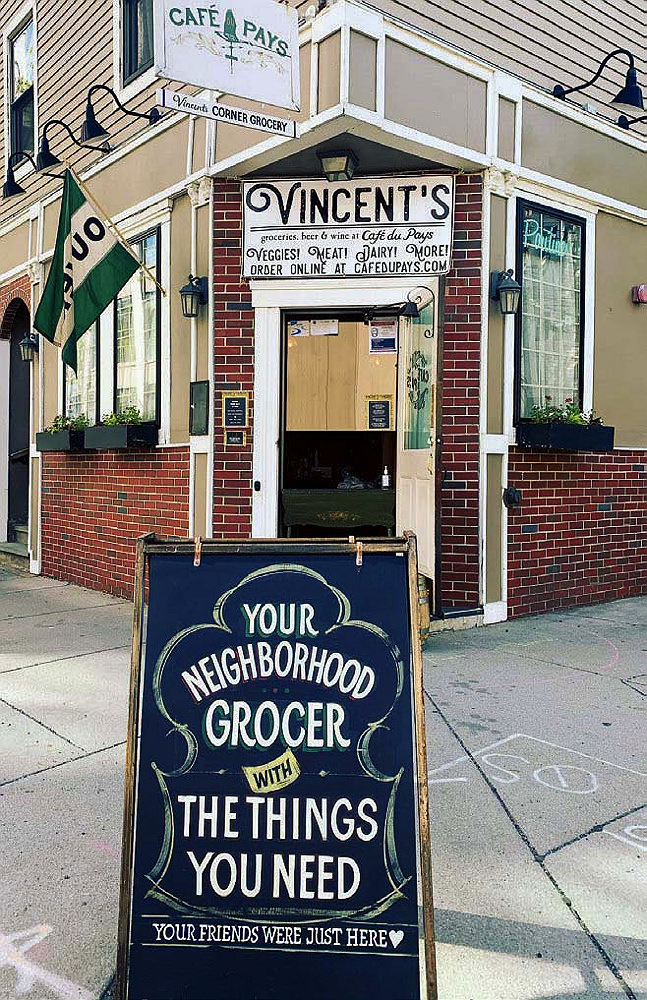 CAFÉ PAYS
Vincent's CORNER GROCERY
VINCENT'S
groceries, beer & wine at Café du Pays
VEGGIES! MEAT! DAIRY! MORE!
ORDER ONLINE AT CAFEDUPAYS.COM
OUI
YOUR
NEIGHBORHOOD
GROCER
WITH
THE THINGS
YOU NEED
YOUR FRIENDS WERE JUST HERE